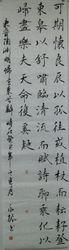 可期懷良辰以孤往或植杖而耘耔登
東皋以舒嘯臨清流而賦詩聊乘化以
歸盡樂夫天命復奚疑